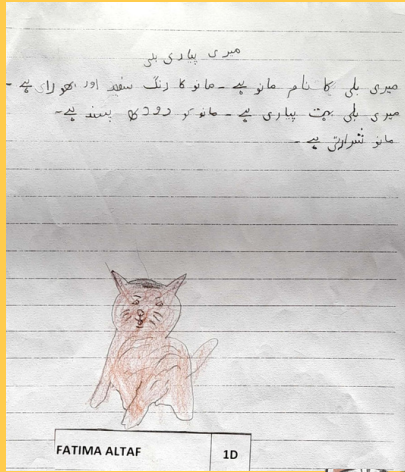 میری پیاری بلی
میری بلی کا نام مانو ہے - مانو کا رنگ سفید اور بھورا ہے -
میری بلی بہت پیاری ہے - مانو کو دودھ پسند ہے -
مانو شرارتی ہے -
FATIMA ALTAF
1D